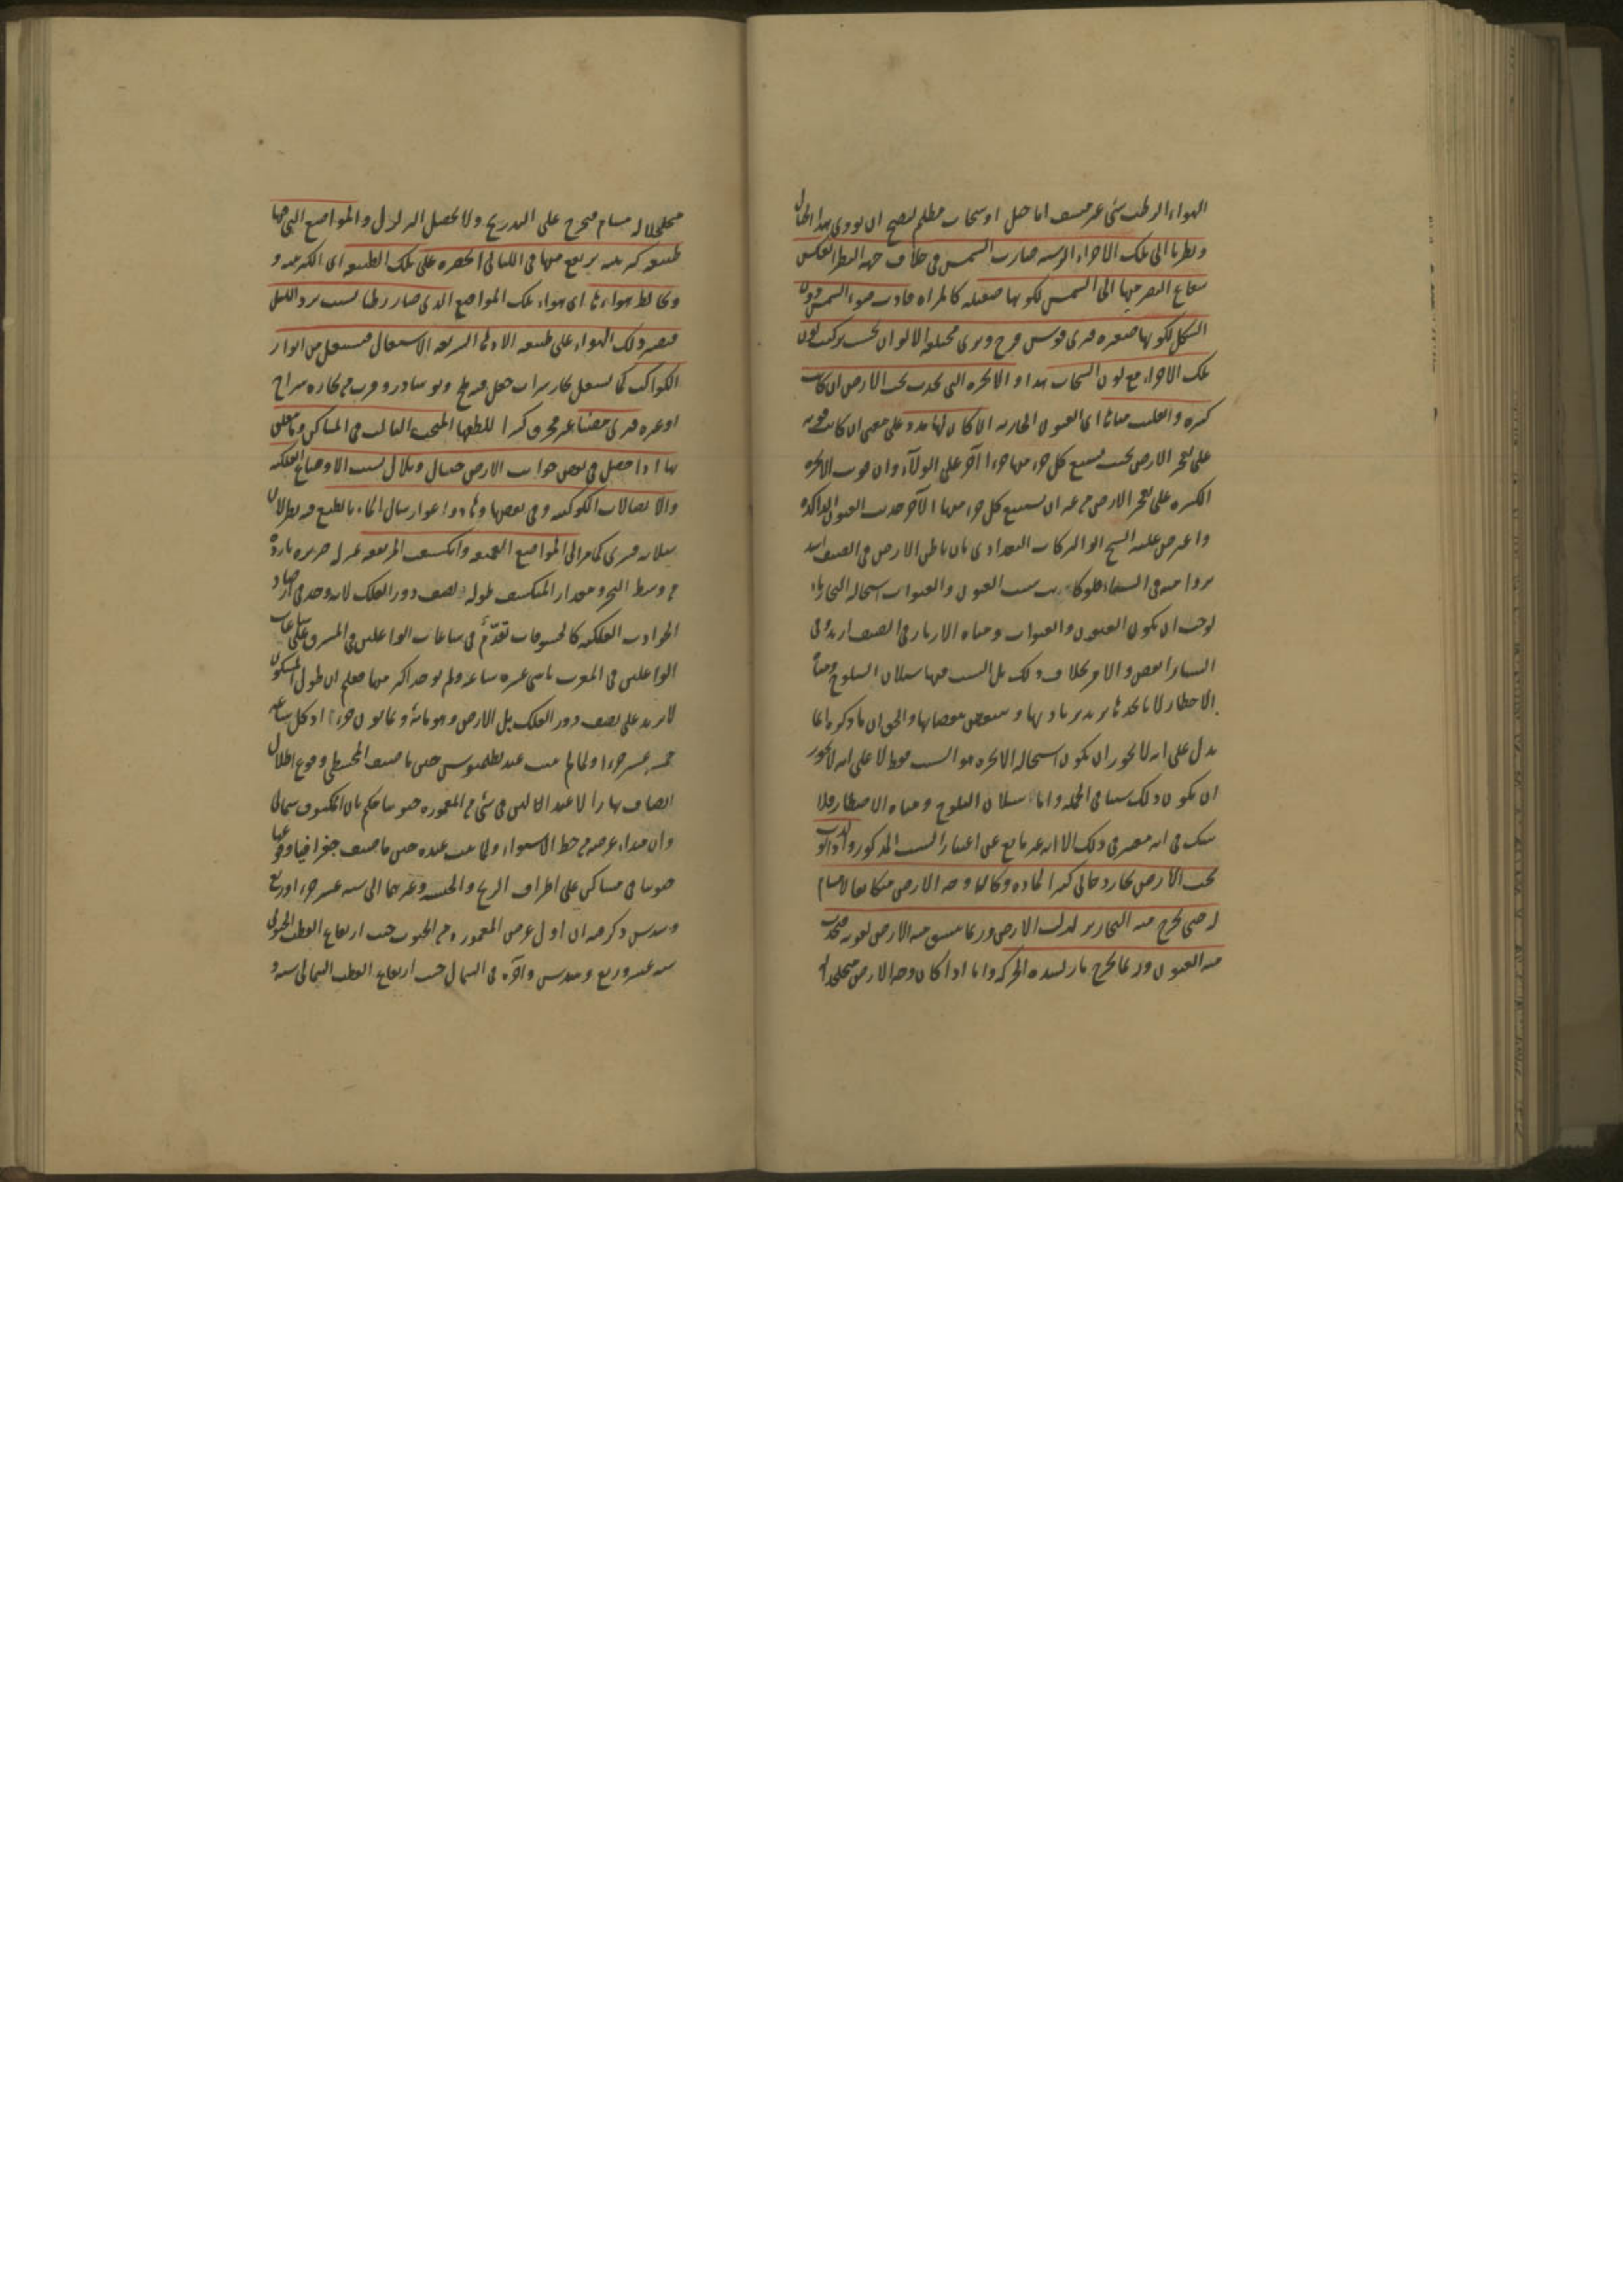 الهواء الرطب شئ غير مشف اما جبل او سحاب مظلم ليصح ان يودى هذا الحال
ونظرنا الى تلك الاجزاء الرشية صارت الشمس فى خلاف جهة النظر انعكس
شعاع البصر منها الى الشمس لكونها صقيلة كالمرآة فادت ضوء الشمس دون
الشكل لكونها صغيرة فيرى قوس قزح ويرى مختلفة الالوان بحسب تركيب لون
تلك الاجزاء مع لون السحاب هذا والابخرة التى تحدث تحت الارض ان كانت
كثيرة وانقلبت مياها اى العيون الجارية ان كان لها مدد على معنى ان كانت قوية
على تفجر الارض بحيث يستتبع كل جزء منها جزءا آخر على الولآء وان قويت الابخرة
الكثيرة على تفجر الارض من غير ان يستتبع كل جزء منها الآخر حدث العيون الراكدة
واعترض عليه الشيخ ابو البركات البغدادى بان باطن الارض فى الصيف اشد
بردا منه فى الشتاء فلو كانت سبب العيون والقنوات استحالة البخار ماء
لوجب ان يكون العيون والقنوات ومياه الآبار فى الصيف ازيد وفى
الشتاء انقص والامر بخلاف ذلك بل السبب فيها سيلان الثلوج ومياه
الامطار لانا نجدها تزيد بزيادتها وتنقص بنقصانها والحق ان ما ذكره انما
يدل على انه لا يجوز ان يكون استحالة الابخرة هو السبب فقط لا على انه لا يجوز
ان يكون ذلك سببا فى الجملة واما سيلان الثلوج ومياه الامطار فلا
شك فى انه معتبر فى ذلك الا انه غير مانع عن اعتبار السبب المذكور واذا تولد
تحت الارض بخار دخانى كثير المادة وكان وجه الارض متكاثفا لا مسام
له حتى يخرج منه البخار تزلزلت الارض وربما ينشق منه الارض لقوته فيحدث
منه العيون وربما يخرج نار لشدة الحركة واما اذا كان وجه الارض متخلخلا
متخلخلا له مسام فيخرج على التدريج ولا يحصل الزلازل والمواضع التى فيها
طبيعة كبريتية يرتفع منها فى الليالى ابخرة على تلك الطبيعة اى الكبريتية و
ويخالط هواءها اى هواء تلك المواضع الذى صار رطبا بسبب برد الليل
فيصير ذلك الهواء على طبيعة الادهان السريعة الاشتعال فيشتعل من انوار
الكواكب كما يشتعل بخار شراب جعل فيه ملح ونوشادر وقرب من بخاره سراج
او غيره فيرى مضيئا غير محرق كثيرا للطفها المبحث الثالث فى المساكن وما يتعلق
بها اذا حصل فى بعض جوانب الارض جبال وتلال بسبب الاوضاع الفلكية
والاتصالات الكوكبية وفى بعضها وهاد واغوار سال الماء بالطبع فى بطلان
سيلانه فيرى كما مر الى المواضع العميقة وانكشف المرتفعة بمنزلة جزيرة بارزة
من وسط البحر ومقدار المنكشف طوله نصف دور الفلك لانه وجد فى ارصاد
الحوادث الفلكية كالخسوفات تقدّم فى ساعات الواغلين فى المشرق على ساعات
الواغلين فى المغرب باثنى عشرة ساعة ولم يوجد اكثر منها فعلم ان طول المسكون
لا يزيد على نصف دور الفلك بل الارض وهو مائة وثمانون جزءا اذ كل ساعة
خمسة عشر جزءا ولما لم يثبت عند بطلميوس حين ما صنف المجسطى وقوع اظلال
انصاف نهار الاعتدالين فى شئ من المعمورة جنوبيا حكم بان المكشوف شمالى
وان مبداء عرضه من خط الاستواء ولما ثبت عنده حين ما صنف جغرافيا وقوعها
جنوبيا فى مساكن على اطراف الزنج والحبشة وغيرهما الى ستة عشر جزءا وربع
وسدس ذكر فيه ان اول عرض المعمورة من الجنوب حيث ارتفاع القطب الجنوبى
ستة عشر وربع وسدس وآخره فى الشمال حيث ارتفاع القطب الشمالى ستة و